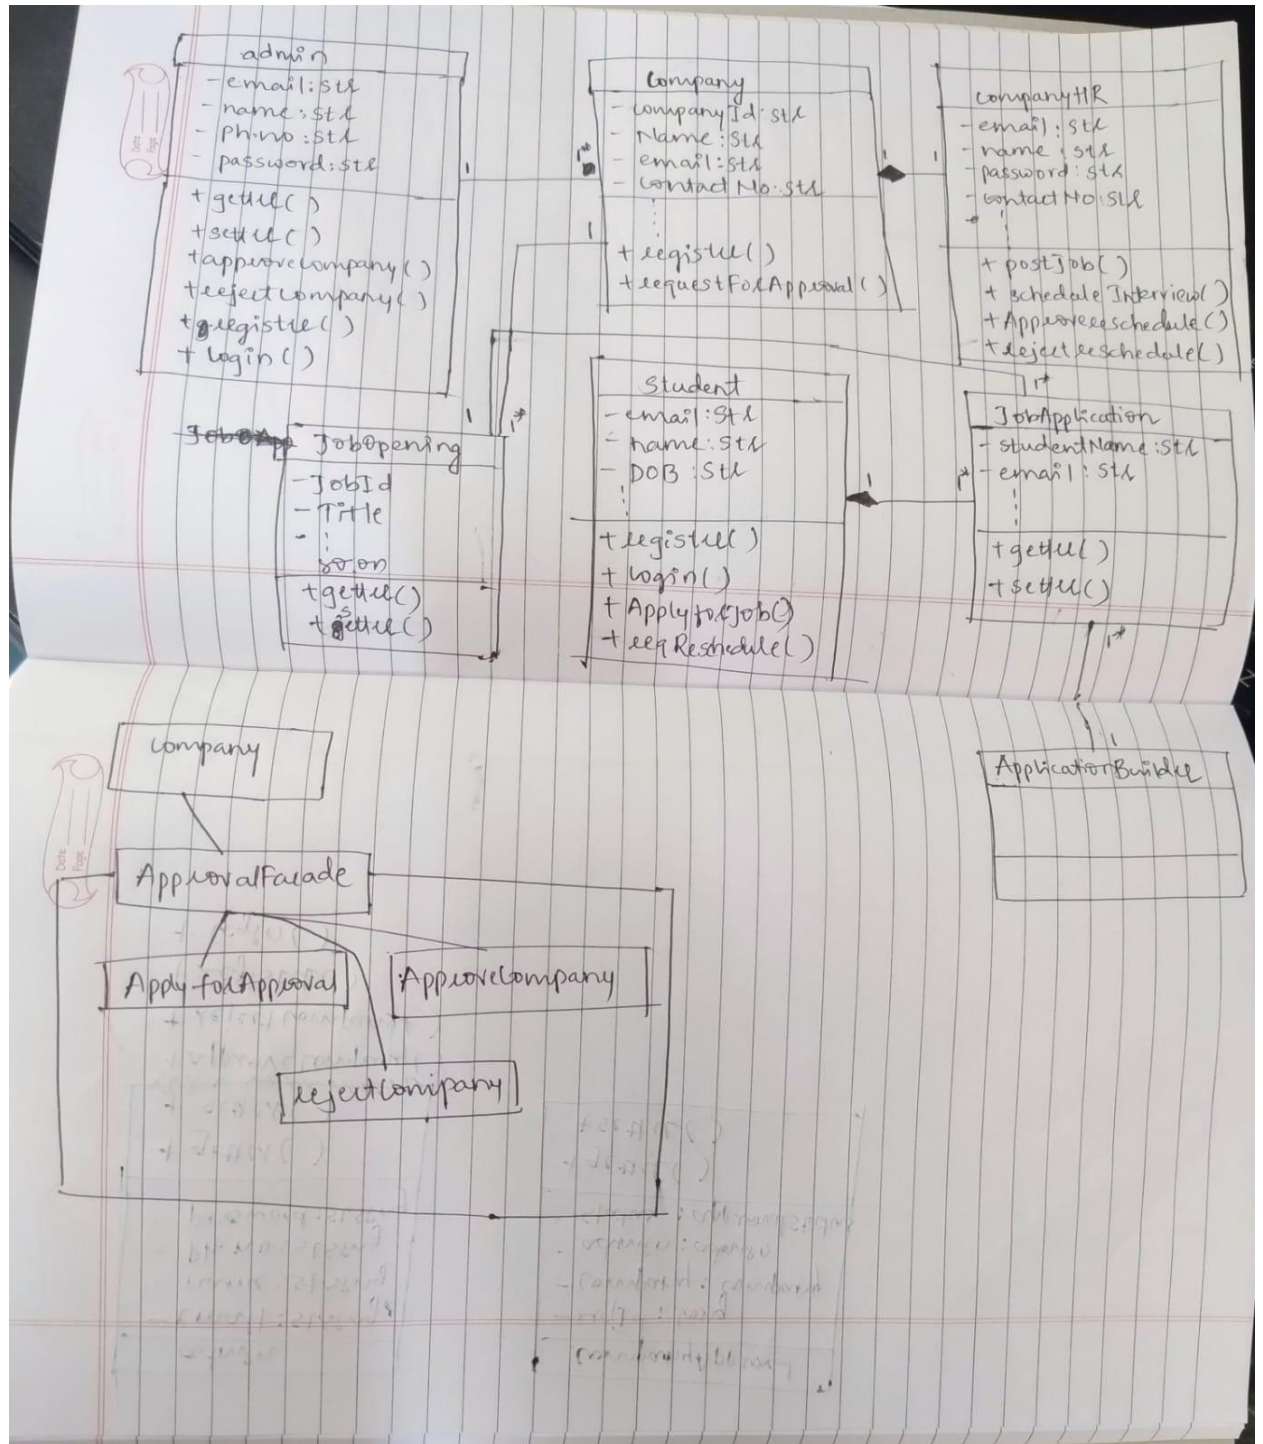 admin
- email : str
- name : str
- ph.no : str
- password : str
+ getter( )
+ setter( )
+approvecompany( )
+rejectcompany( )
+ register( )
+ login( )
1
1*
Company
- companyId : str
- Name : str
- email : str
- contactNo : str
+ register( )
+ requestForApproval( )
1
1
1
CompanyHR
- email : str
- name : str
- password : str
- contactNo : str
+ postJob( )
+ scheduleInterview( )
+ Approvereschedule( )
+ rejectreschedule( )
JobOpening
- JobId
- Title
-
so on
+ getter( )
+ setter( )
1
1*
Student
- email : str
- name : str
- DOB : str
+ register( )
+ login( )
+ ApplyforJob( )
+ reqReschedule( )
1
1*
1*
JobApplication
- studentName : str
- email : str
+ getter( )
+ setter( )
1*
1
ApplicationBuilder
Date
Page
Company
ApprovalFacade
Apply forApproval
ApproveCompany
rejectCompany
Date
Page